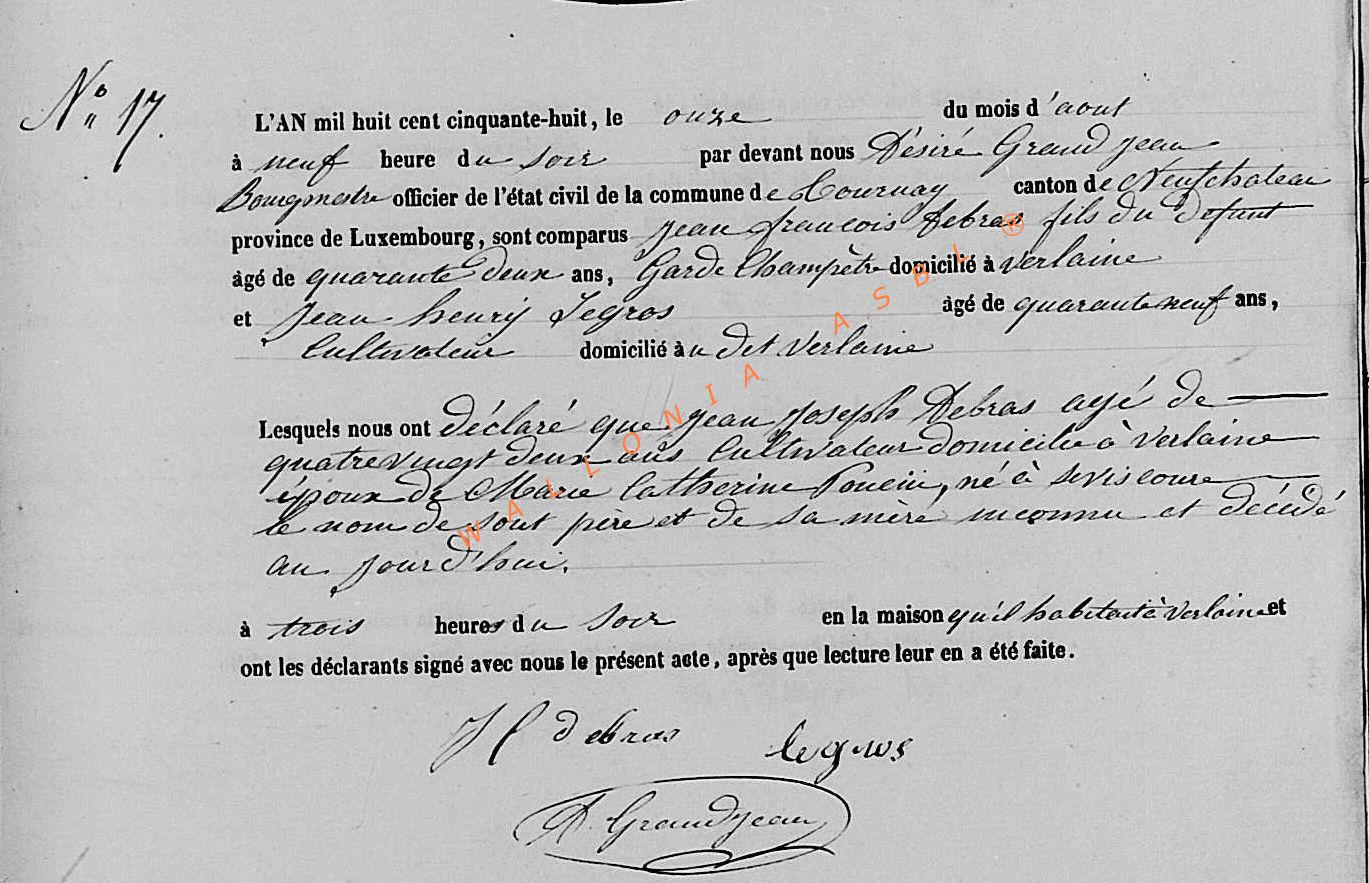 No 17.
L'AN mil huit cent cinquante-huit, le onze du mois d'aout
à neuf heure du soir par devant nous Désiré Grandjean
Bourgmestre officier de l'état civil de la commune de Tournay canton de Neufchateau
province de Luxembourg, sont comparus Jean francois Debras fils du defunt
âgé de quarante deux ans, Garde Champètre domicilié à Verlaine
et Jean henry Legros âgé de quarante neuf ans,
Cultivateur domicilié à u dit Verlaine
Lesquels nous ont déclaré que Jean Joseph Debras agé de
quatre vingt deux ans Cultivateur domicilié à Verlaine
époux de Marie Catherine né à seviscourt
le nom de sont père et de sa mère inconnu et décédé
au jourd'hui.
à trois heures du soir en la maison qu'il habitait à Verlaine et
ont les déclarants signé avec nous le présent acte, après que lecture leur en a été faite.
Debras legros
D. Grandjean
WALLONIA ASBL ®